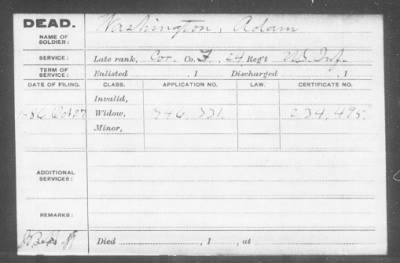 DEAD.
NAME OF SOLDIER: Washington, Adam
SERVICE: Late rank, Cor. Co. F, 24 Reg't US Inf.
TERM OF SERVICE: Enlisted , 1 Discharged , 1
DATE OF FILING. CLASS. APPLICATION NO. LAW. CERTIFICATE NO.
Invalid,
Widow, 346,331. 234,495.
Minor,
ADDITIONAL SERVICES:
REMARKS:
Died , 1 , at